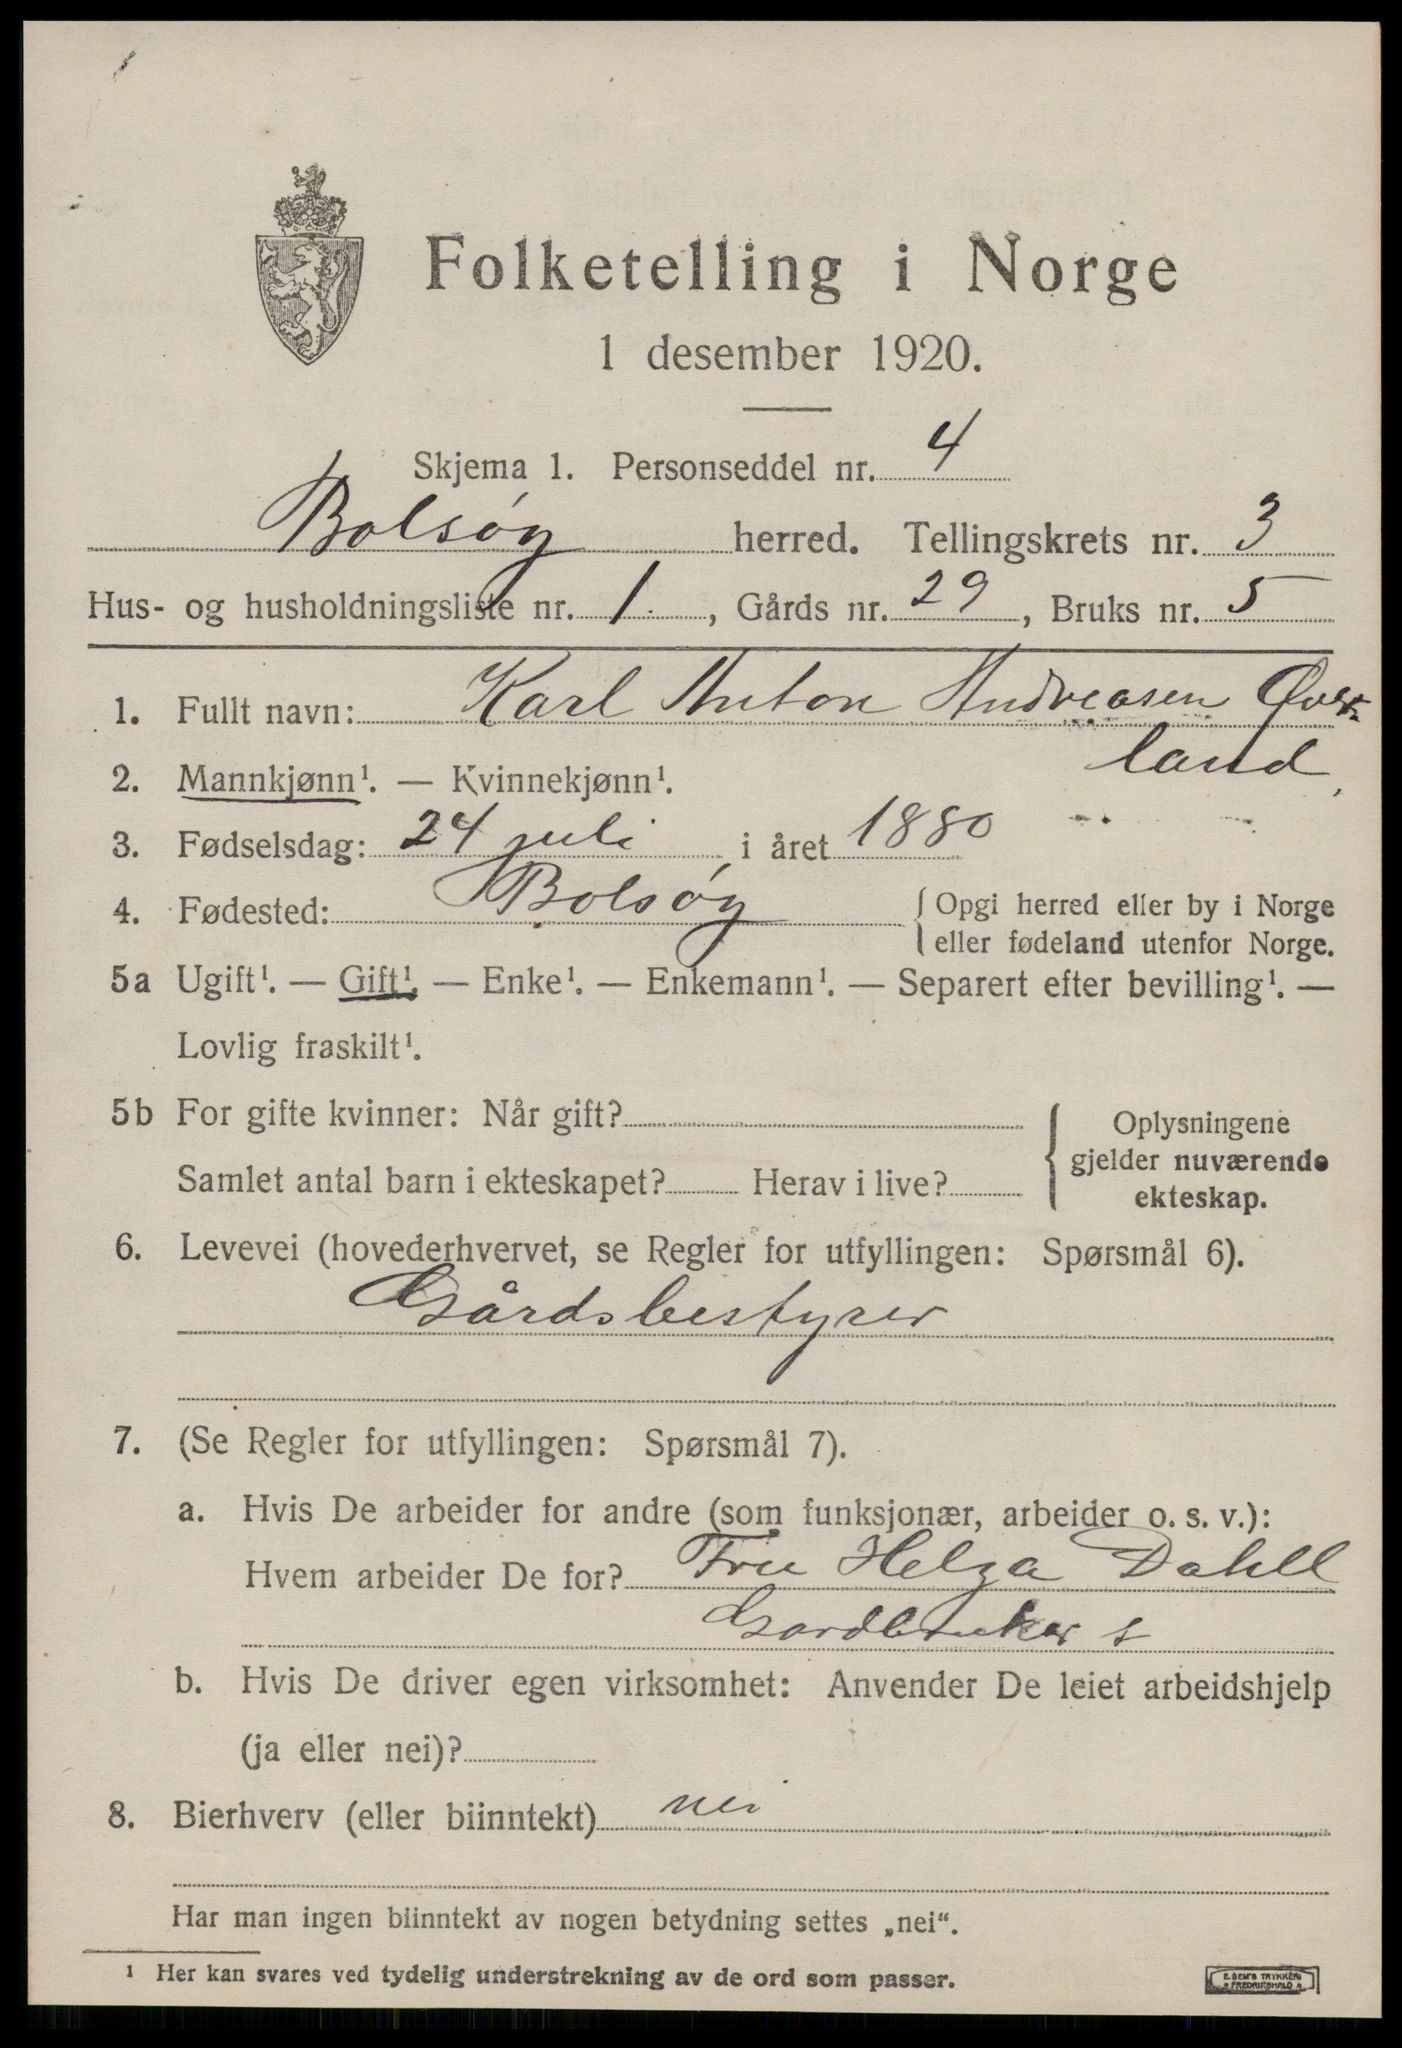 Folketelling i Norge
1 desember 1920.
Skjema 1. Personseddel nr. 4
Bolsøy herred. Tellingskrets nr. 3
Hus- og husholdningsliste nr. 1. , Gårds nr. 29 , Bruks nr. 5
1. Fullt navn: Karl Anton Andreasen Over-
land
2. Mannkjønn¹. — Kvinnekjønn¹.
3. Fødselsdag: 24 juli i året 1880
4. Fødested: Bolsøy { Opgi herred eller by i Norge
eller fødeland utenfor Norge.
5a Ugift¹. — Gift¹. — Enke¹. — Enkemann¹. — Separert efter bevilling¹. —
Lovlig fraskilt¹.
5b For gifte kvinner: Når gift?
Samlet antal barn i ekteskapet? Herav i live?
{ Oplysningene
gjelder nuværende
ekteskap.
6. Levevei (hovederhvervet, se Regler for utfyllingen: Spørsmål 6).
Gårdsbestyrer
7. (Se Regler for utfyllingen: Spørsmål 7).
a. Hvis De arbeider for andre (som funksjonær, arbeider o. s. v.):
Hvem arbeider De for? Fru Helga Dahll
Gardbruker s
b. Hvis De driver egen virksomhet: Anvender De leiet arbeidshjelp
(ja eller nei)?
8. Bierhverv (eller biinntekt) nei
Har man ingen biinntekt av nogen betydning settes „nei“.
¹ Her kan svares ved tydelig understrekning av de ord som passer.
E. SEM'S TRYKKERI
FREDRIKSHALD